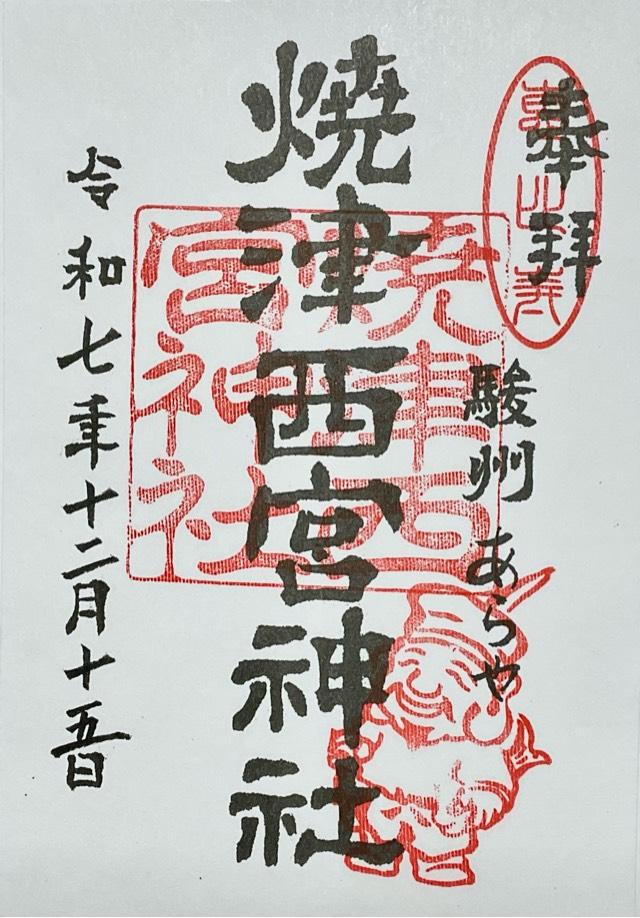 奉拝
駿州 あらや
燒津西宮神社
焼津西
宮神社
令和七年十二月十五日